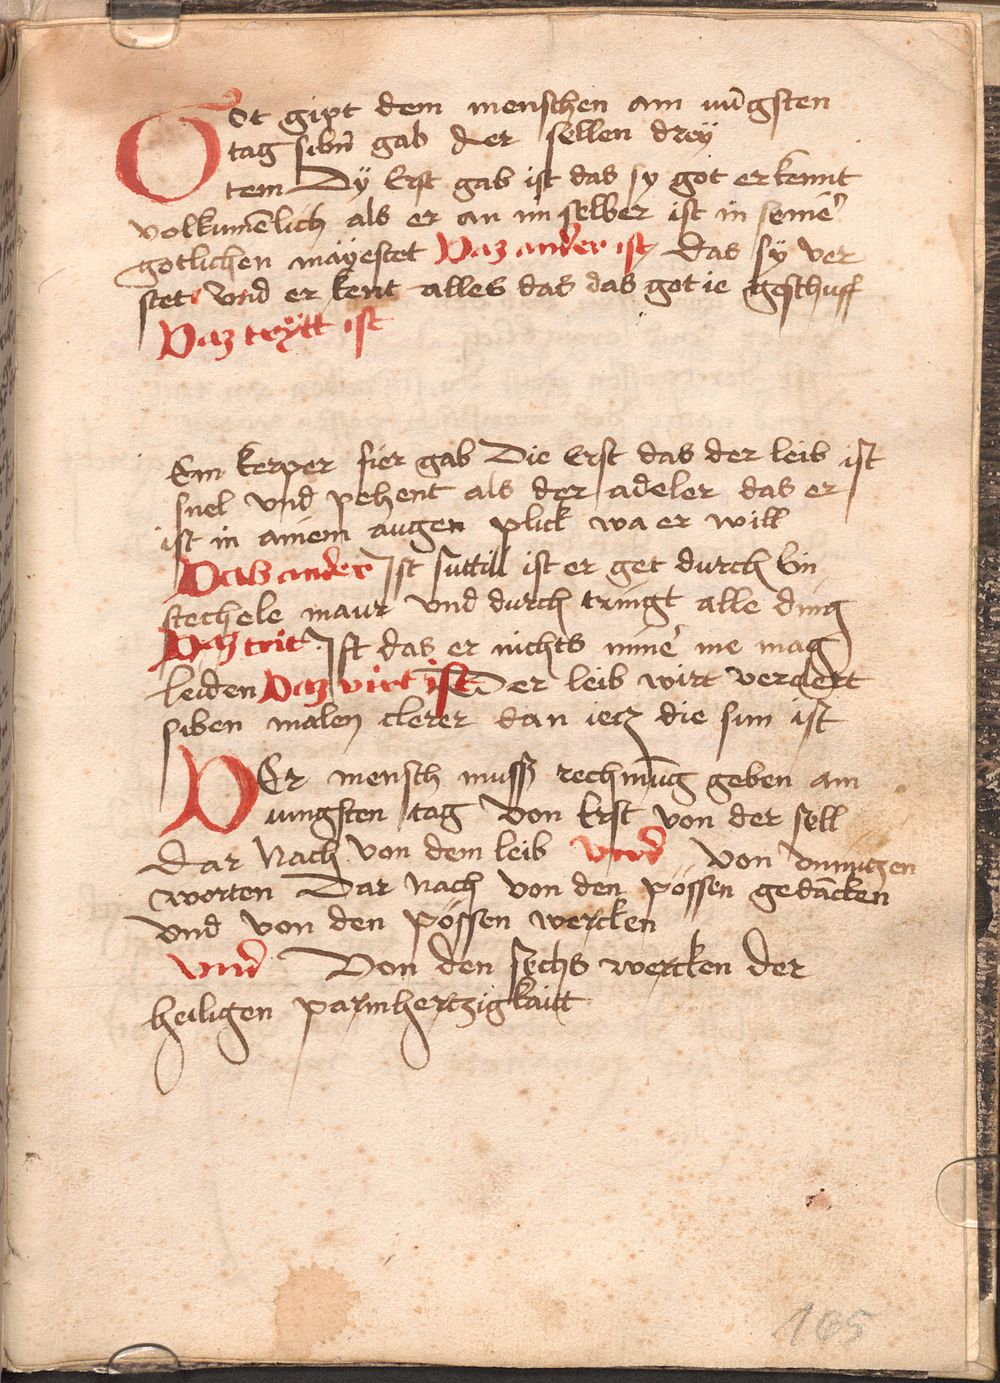 Got gipt dem menschen am iungsten
tag sibn̄ gab der sellen dreÿ
tem Dÿ Erst gab ist das sy got erkennt
volkumēlich als er an im selber ist in seinē
gotlichen mäyestet Daz ander ist das sÿ ver
stet vnd er kent alles das das got ie geschuff
Daz trÿtt ist
Ein kerper fier gab Die Erst das der leib ist
snel vnd pehent als der adeler das er
ist in ainem augen plick wa er will
Das ander Ist suttill ist er get durch Ein
stechele maur vnd durch tringt alle ding
Daz trit Ist das er nichts nimē me mag
leiden Daz virt ist Der leib wirt verclert
siben malen clerer dan iecz die sun ist
Der mensch muss rechnūg geben am
iungsten tag Von Erst von der sell
Dar Nach von dem leib vnd von vnnuczen
worten Dar nach von den pössen gedāncken
vnd von den pössen wercken
vnd Von den sechs wercken der
heiligen parmhertzigkaitt
165